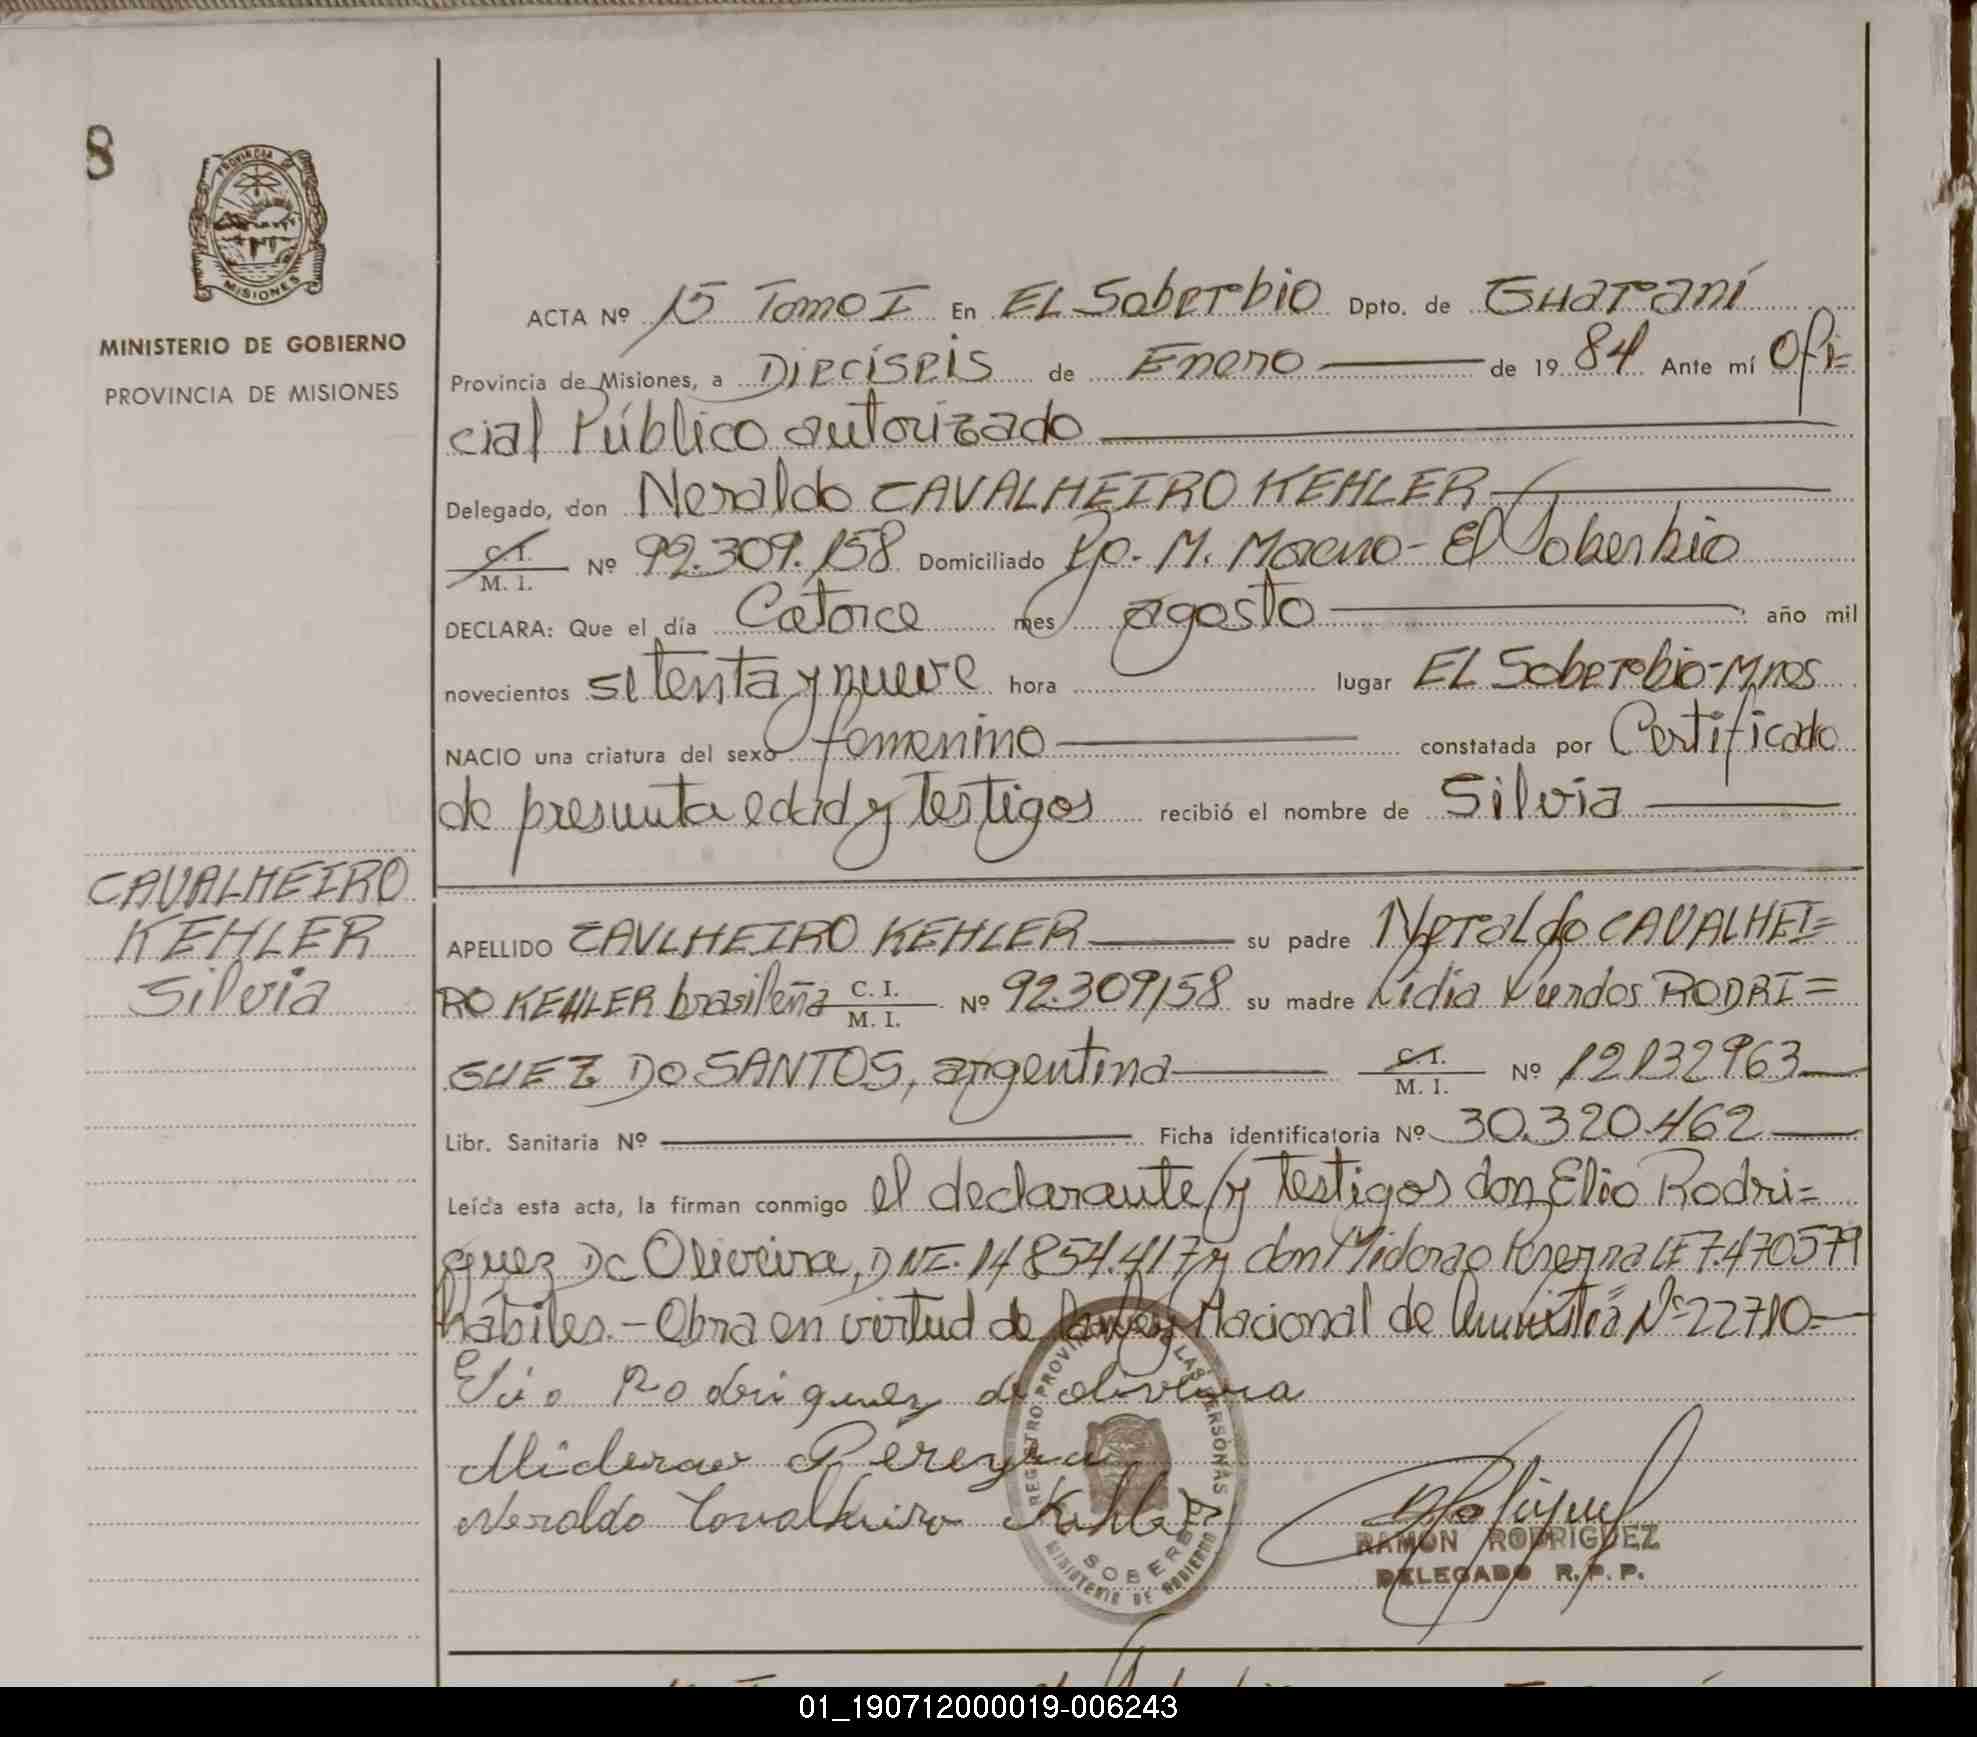 8
PROVINCIA DE
MISIONES
MINISTERIO DE GOBIERNO
PROVINCIA DE MISIONES
ACTA Nº 15 Tomo I En EL Soberbio Dpto. de Guaraní
Provincia de Misiones, a Dieciseis de Enero de 1984 Ante mí Ofi=
cial Público autorizado
Delegado, don Neraldo CAVALHEIRO KEHLER
C. I.
M. I. Nº 92.309.158 Domiciliado Pje. M. Moreno - El Soberbio
DECLARA: Que el día Catorce mes agosto año mil
novecientos setenta y nueve hora lugar EL Soberbio-Mnes
NACIO una criatura del sexo femenino constatada por Certificado
de presunta edad y testigos recibió el nombre de Silvia
CAVALHEIRO
KEHLER
Silvia
APELLIDO CAVLHEIRO KEHLER su padre Neraldo CAVALHEI=
RO KEHLER brasileña C. I.
M. I. Nº 92.309158 su madre Lidia Lurdes RODRI=
GUEZ DO SANTOS, argentina C. I.
M. I. Nº 12132963
Libr. Sanitaria Nº Ficha identificatoria Nº 30.320.462
Leída esta acta, la firman conmigo el declarante y testigos don Elio Rodri=
guez De Oliveira, DNI. 14854.417 y don Miderao Pereyra LE 7.470579
hábiles.- Obra en virtud de la Ley Nacional de Amnistía Nº 22710
Elio Rodriguez de oliveira
Miderao Pereyra
Neraldo Cavalheiro Kehler
REGISTRO PROVINCIAL DE LAS PERSONAS
SOBERBIO
MINISTERIO DE GOBIERNO
RAMON RODRIGUEZ
DELEGADO R. P. P.
01_190712000019-006243